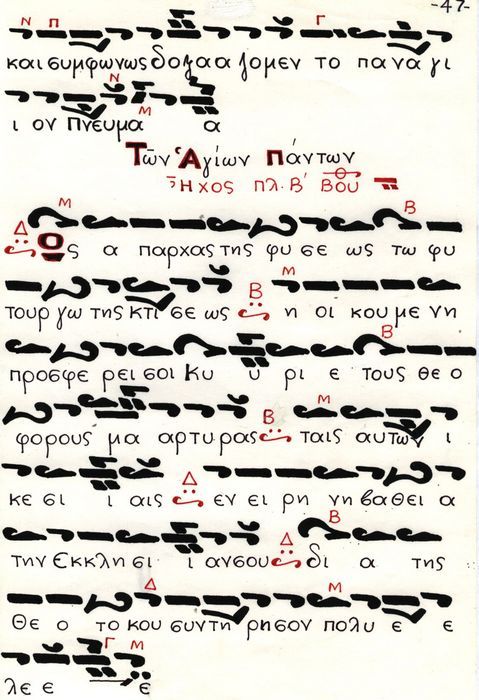 -47-
Ν Π Γ
και συμφωνως δοξα α ζομεν το πα να γι
Ν Μ
ι ον Πνευμα α
Τῶν Ἁγίων Πάντων
Ἦχος πλ. Β' Βου
Μ Β
Δ Ος α παρχας της φυ σε ως τω φυ
Μ
τουρ γω της κτι σε ως Β η οι κου με νη
Β
προσφε ρει σοι Κυ υ ρι ε τους θε ο
Μ
φορους μα αρτυρας Β ταις αυτων ι
κε σι ι αις Δ εν ει ρη νη βαθει α
Β
την Εκκλη σι ι αν σου Δ δι α της
Δ Μ
Θε ο το κου συντη ρησον πολυ ε ε
Γ Μ
λε ε ε